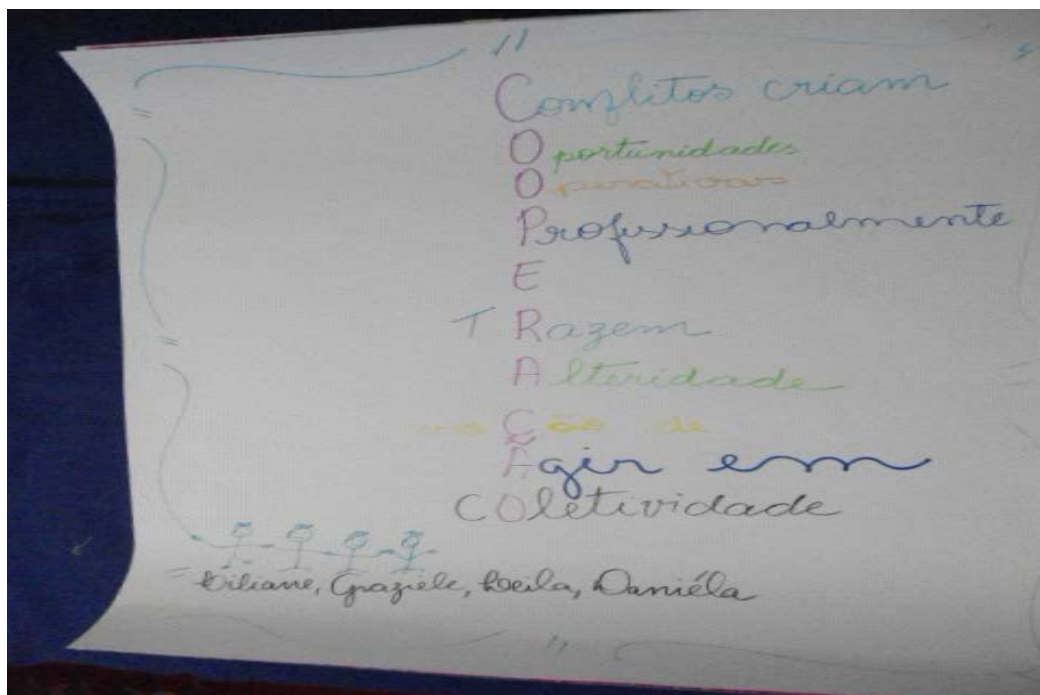 Conflitos criam
Oportunidades
Operativas
Profissionalmente
E
TRazem
Alteridade
noÇão de
Ãgir em
COletividade
Liliane, Graziele, Leila, Daniéla